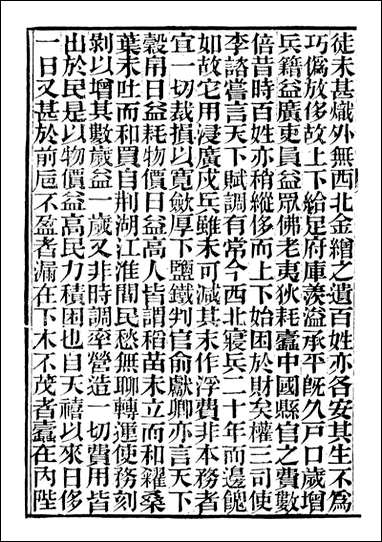 徒未甚熾外無西北金繒之遺百姓亦各安其生不爲
巧僞放侈故上下給足府庫羨溢承平旣久戸口歲增
兵籍益廣吏員益眾佛老夷狄耗蠹中國縣官之費數
倍昔時百姓亦稍縱侈而上下始困於財矣權三司使
李諮嘗言天下賦調有常今西北寢兵二十年而邊餽
如故它用浸廣戍兵雖未可減其末作浮費非本務者
宜一切裁損以寛斂厚下鹽鐵判官俞獻卿亦言天下
穀帛日益耗物價日益高人皆謂稻苗未立而和糴桑
葉未吐而和買自荆湖江淮間民愁無聊轉運使務刻
剝以增其數歲益一歲又非時調率營造一切費用皆
出於民是以物價益高民力積困也自天禧以來日侈
一日又甚於前卮不盈者漏在下木不茂者蠹在內陛